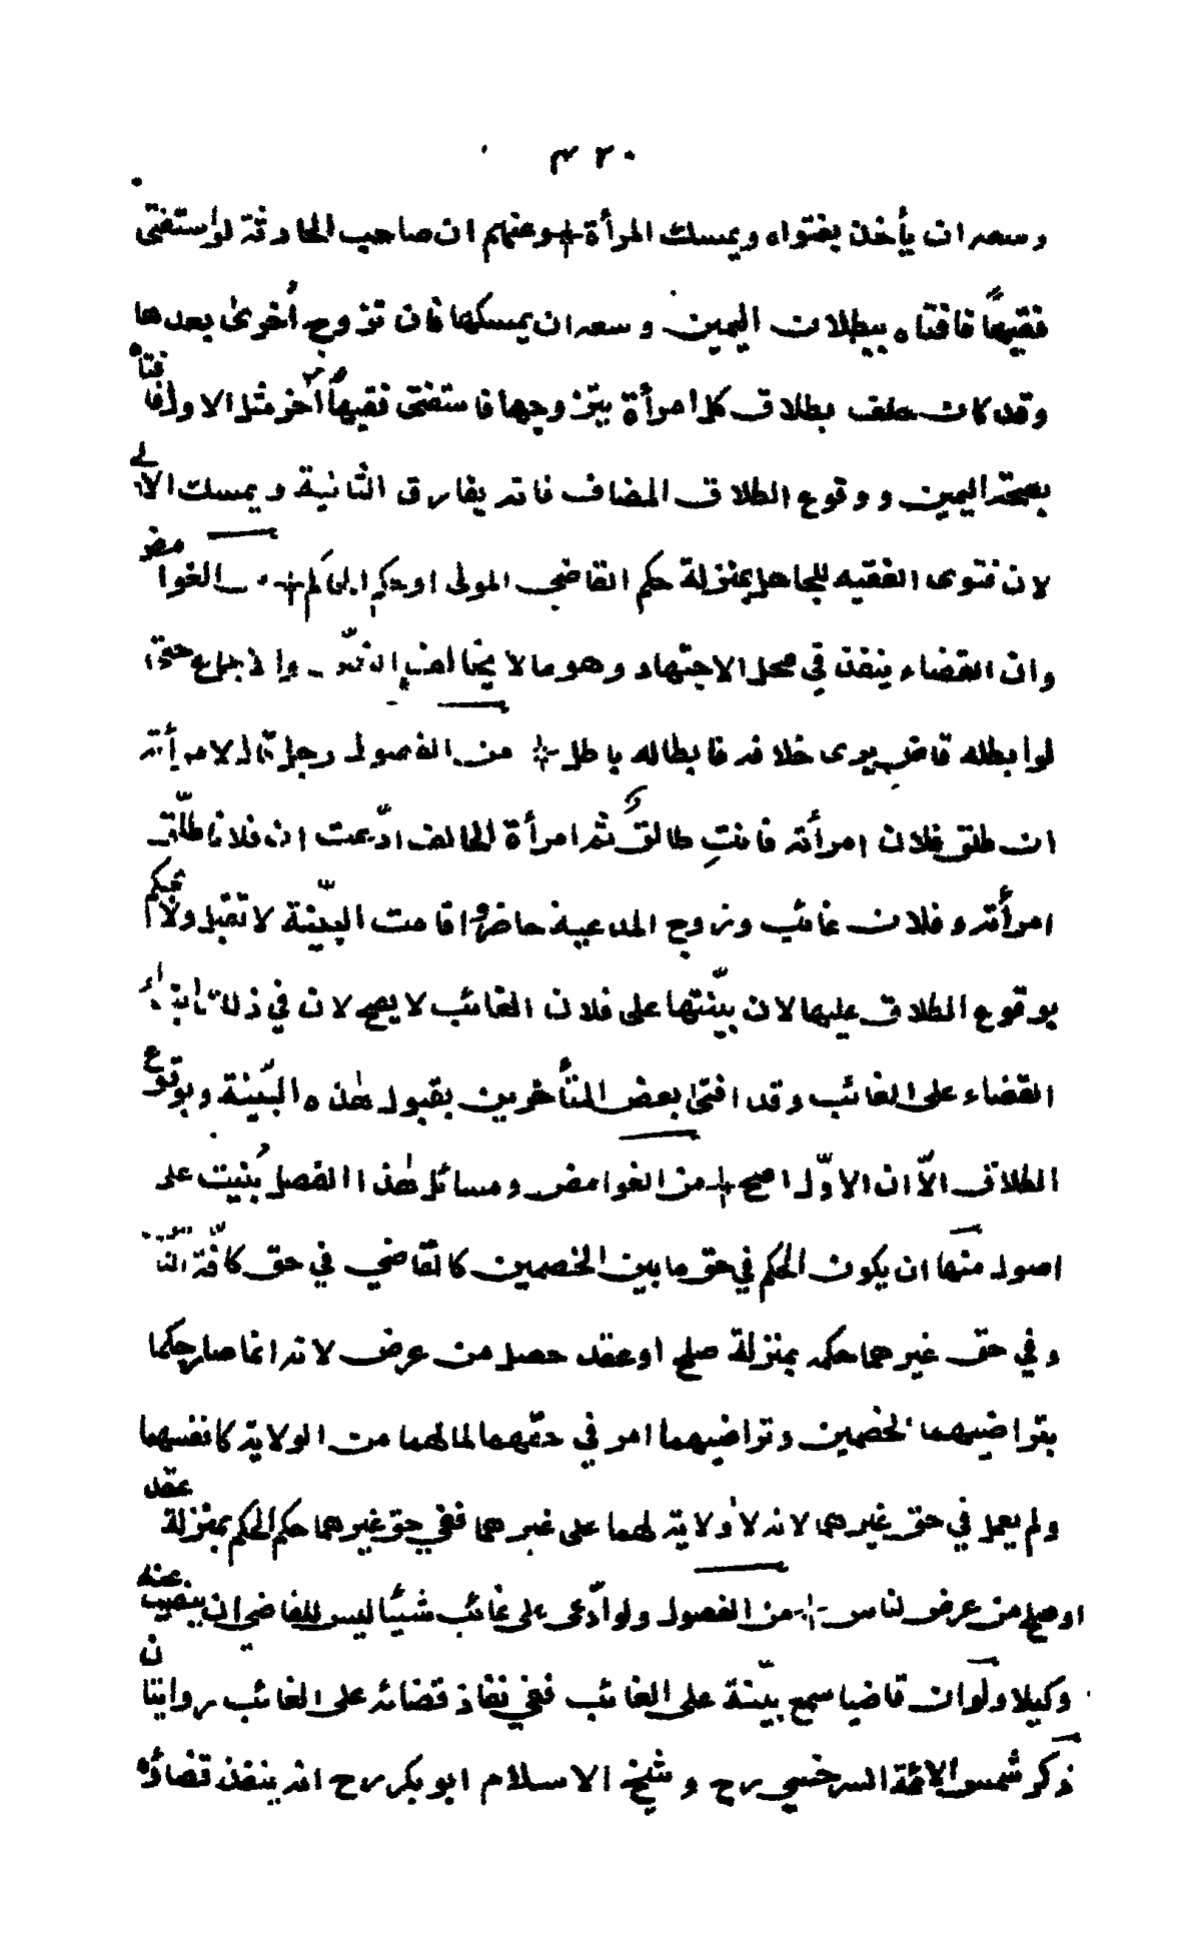 ٣٢٠
وسعه ان يأخذ بفتواه ويمسك المرأة وعنهم ان صاحب الحادثة لو استفتى
فقيهًا فافتاه ببطلان اليمين وسعه ان يمسكها فان تزوج أُخرى بعدها
وقد كان حلف بطلاق كل امرأة يتزوجها فاستفتى فقيهًا آخر مثل الاول فافتاه
بصحة اليمين ووقوع الطلاق المضاف فانه يفارق الثانية ويمسك الاولى
لان فتوى الفقيه للجاهل بمنزلة حكم القاضي المولى او حكم الحاكم الغوامض
وان القضاء ينفذ في محل الاجتهاد وهو ما لا يخالف النصّ والاجماع حتى
لو ابطله قاض يرى خلافه فابطاله باطل من الفصول رجل قال لامرأته
ان طلق فلان امرأته فانتِ طالق ثم امرأة الحالف ادّعت ان فلانا طلّق
امرأته وفلان غائب وزوج المدعية حاضر واقامت البيّنة لا تقبل ولا يحكم
بوقوع الطلاق عليها لان بيّنتها على فلان الغائب لا يصح لان في ذلك ابتداء
القضاء على الغائب وقد افتى بعض المتأخرين بقبول هذه البيّنة وبوقوع
الطلاق الاّ ان الاوّل اصح من الغوامض ومسائل هذا الفصل بُنيت على
اصول منها ان يكون الحكم في حق ما بين الخصمين كالقاضي في حق كافّة الناس
وفي حق غيرهما حكمه بمنزلة صلح او عقد حصل من عرض لانه انما صار حكما
بتراضيهما الخصمين وتراضيهما امر في حقهما لما لهما من الولاية كانفسهما
ولم يعمل في حق غيرهما لانه لا ولاية لهما على غيرهما ففي حق غيرهما حكم الحكم بمنزلة عقد
او صلح من عرض لناس من الفصول ولو ادّعى على غائب شيئًا ليس للقاضي ان ينصب عنه
وكيلا ولو ان قاضيا سمع بيّنة على الغائب ففي نفاذ قضائه على الغائب روايتان
ذكر شمس الائمة السرخسي رح وشيخ الاسلام ابو بكر رح انه ينفذ قضاؤه